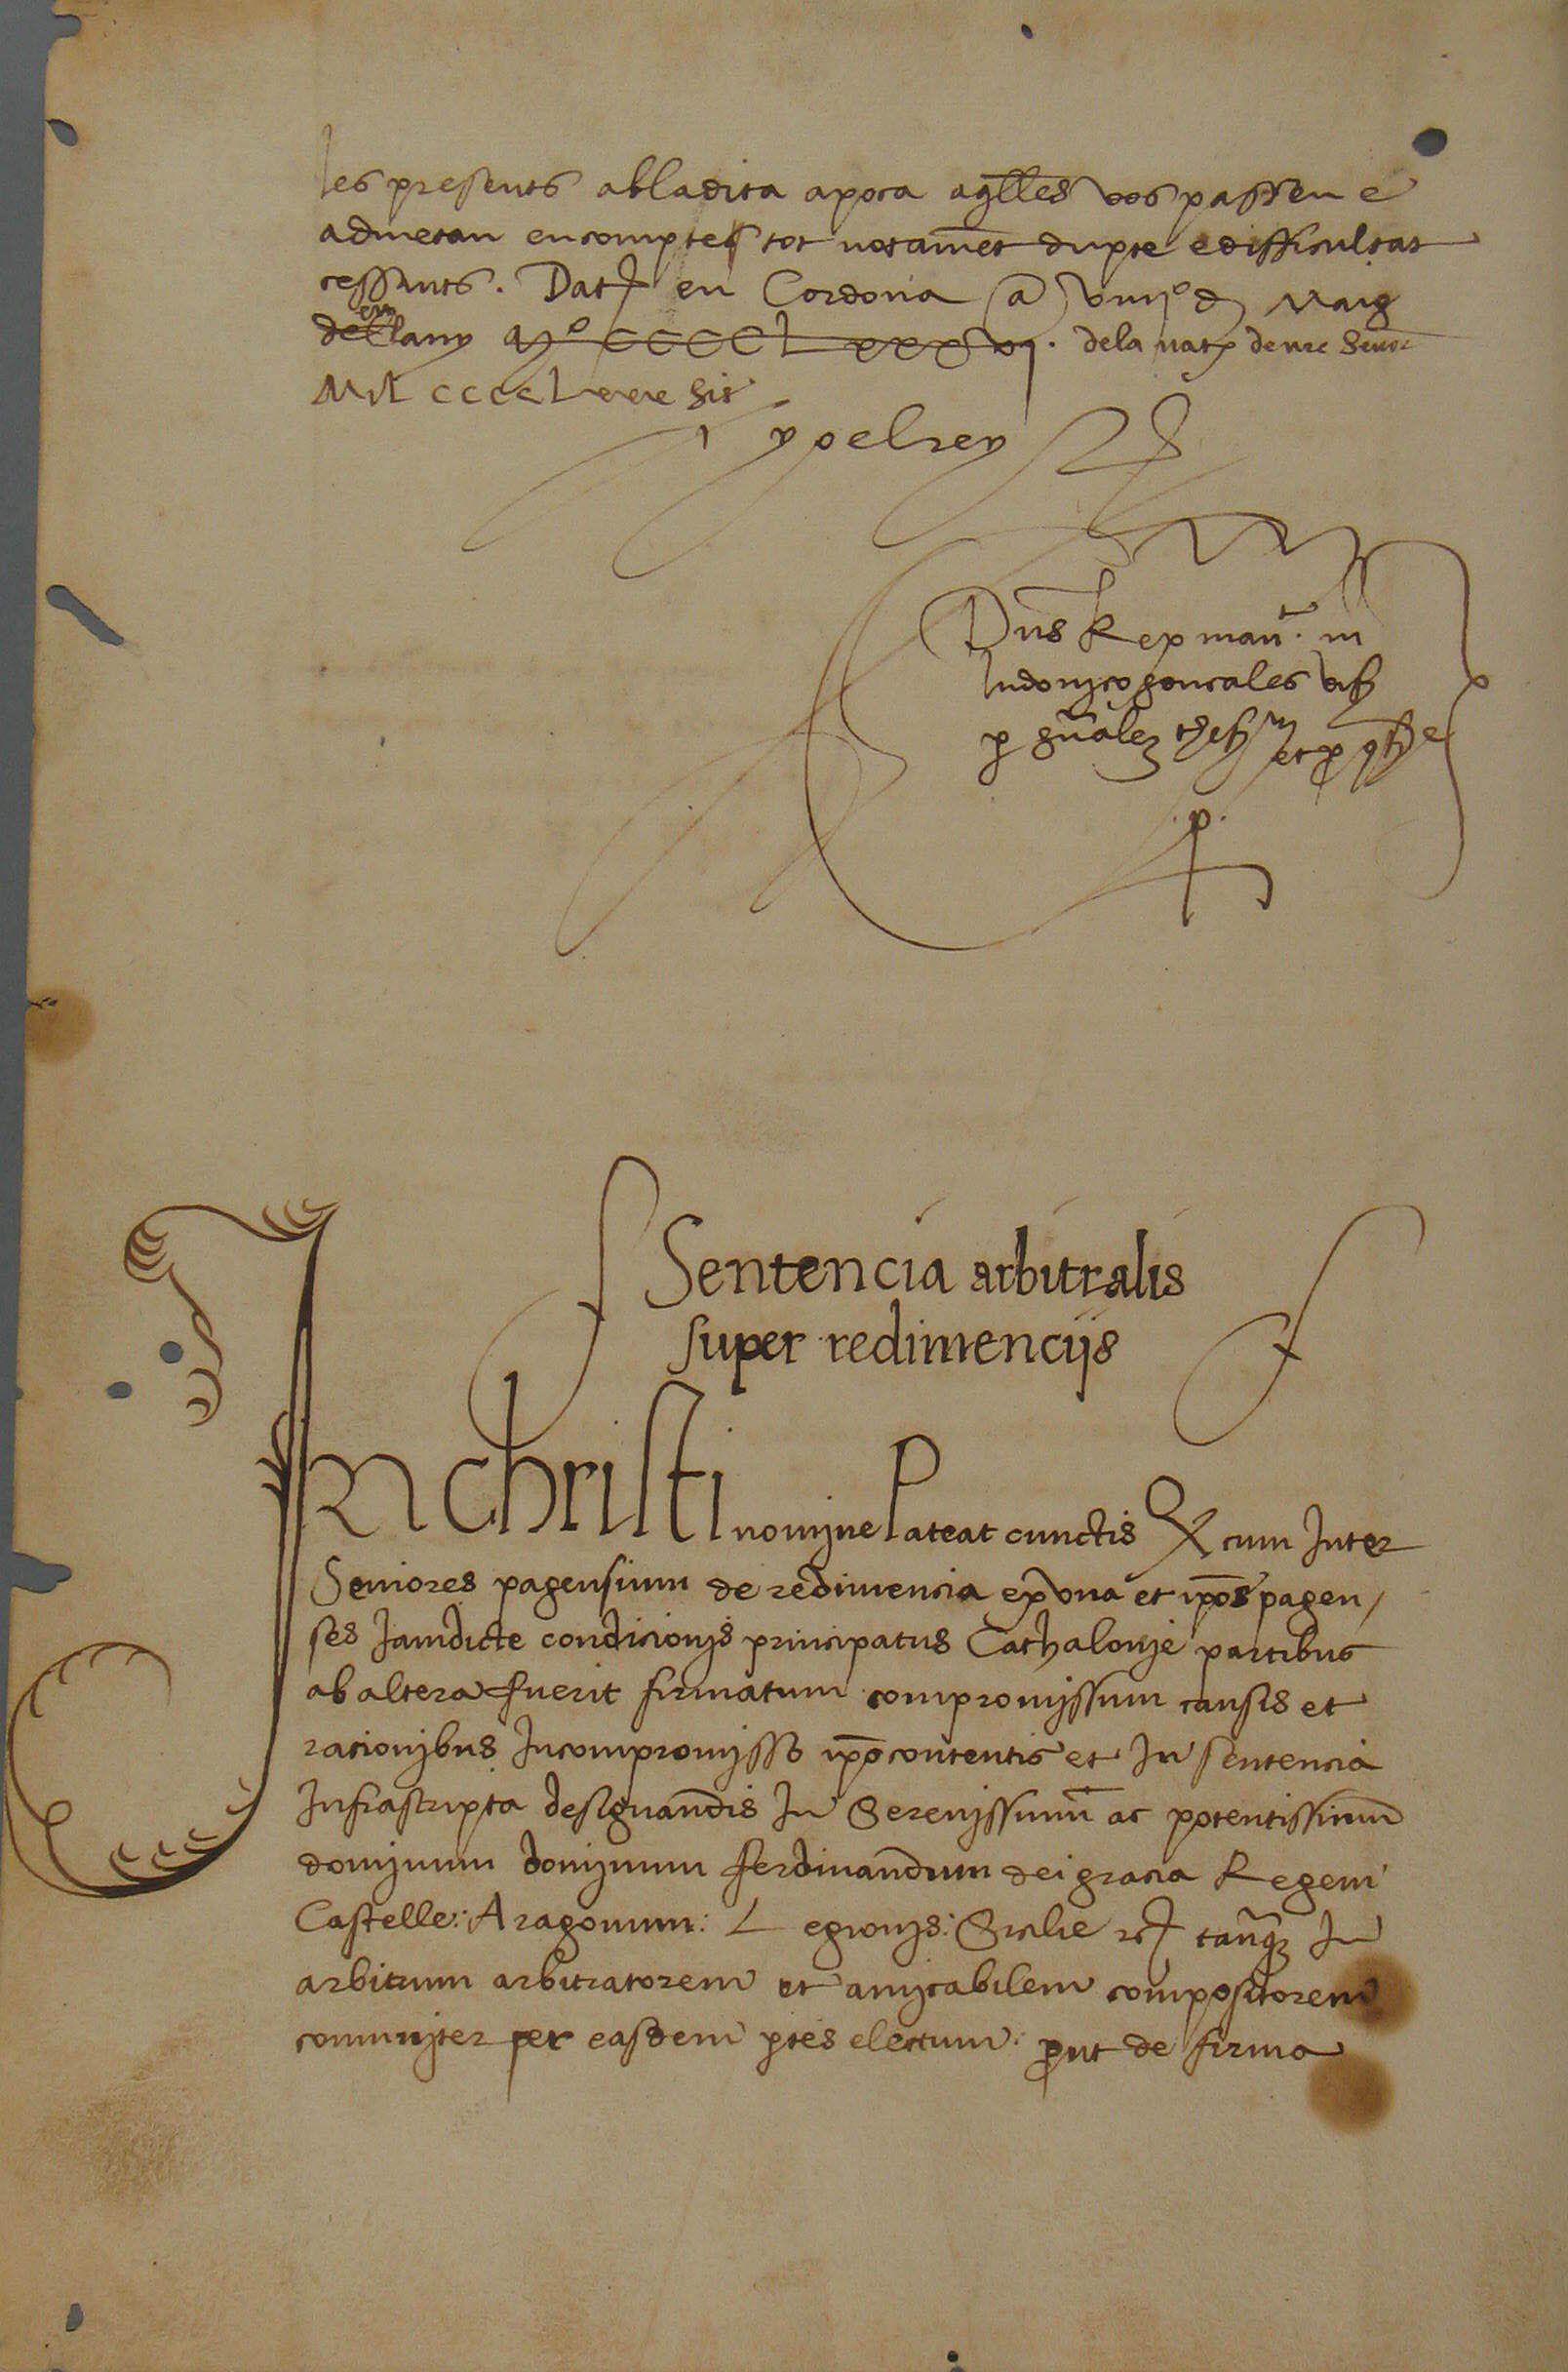 les presents ab la dita apoca aqlles vos passen e
admetan en compte tot notament dupte e difficultat
cessants. Dat en Cordova a viiijº d Maig
en lany Mº CCCCLxxxvj. dela nat de nre Senor
Mil CCCCLxxx sis
yo el rey
Dns Rex man. m
ludovico goncales vis
p gnalem thes et p
.p.
Sentencia arbitralis
super redimencijs
In christi nomine Pateat cunctis Q cum Inter
Seniores pagensium de redimencia ex una et ipos pagen/
ses Jamdicte condicionis principatus Cathalonie partibus
ab altera fuerit firmatum compromissum causis et
racionibus In compromisso ipo contentis et In sentencia
Infrascripta designandis In Serenissimu ac potentissimu
dominum dominum ferdinandum dei gracia Regem
Castelle: Aragonum: Legionis: Sicilie etc tanqz In
arbitrum arbitratorem et amicabilem compositorem
comuniter per easdem ptes electum: put de firma